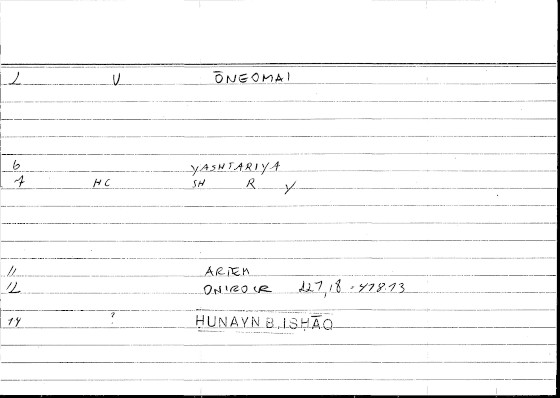 1 V ŌNEOMAI
6 YASHTARIYA
7 HC SH R Y
11 ARTEM
12 ONIROCR 227,18 - 478.13
14 ? ḤUNAYN B. ISḤĀQ